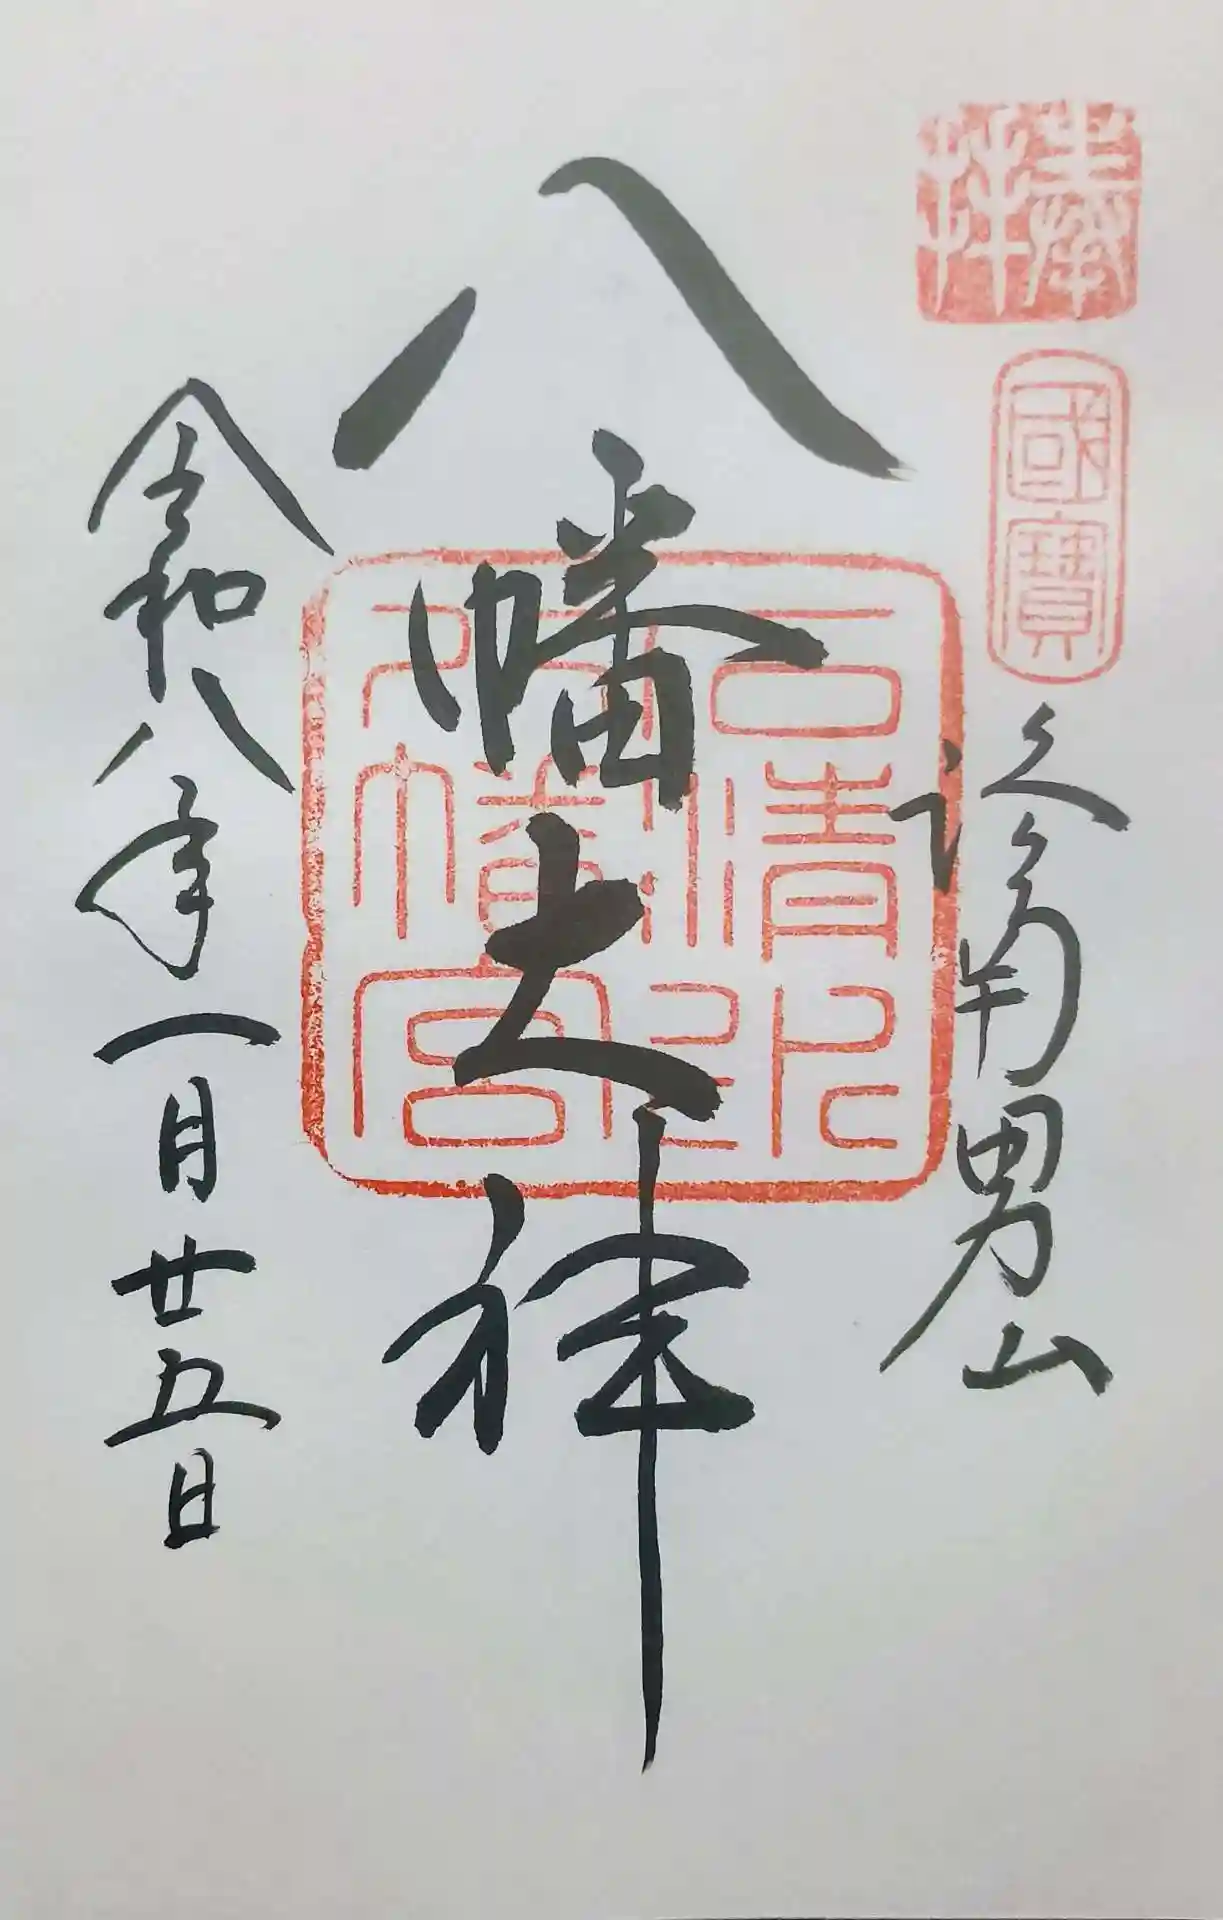 奉拝
國寶
洛南男山
八幡大神
石清水八幡宮印
令和八年一月廿五日